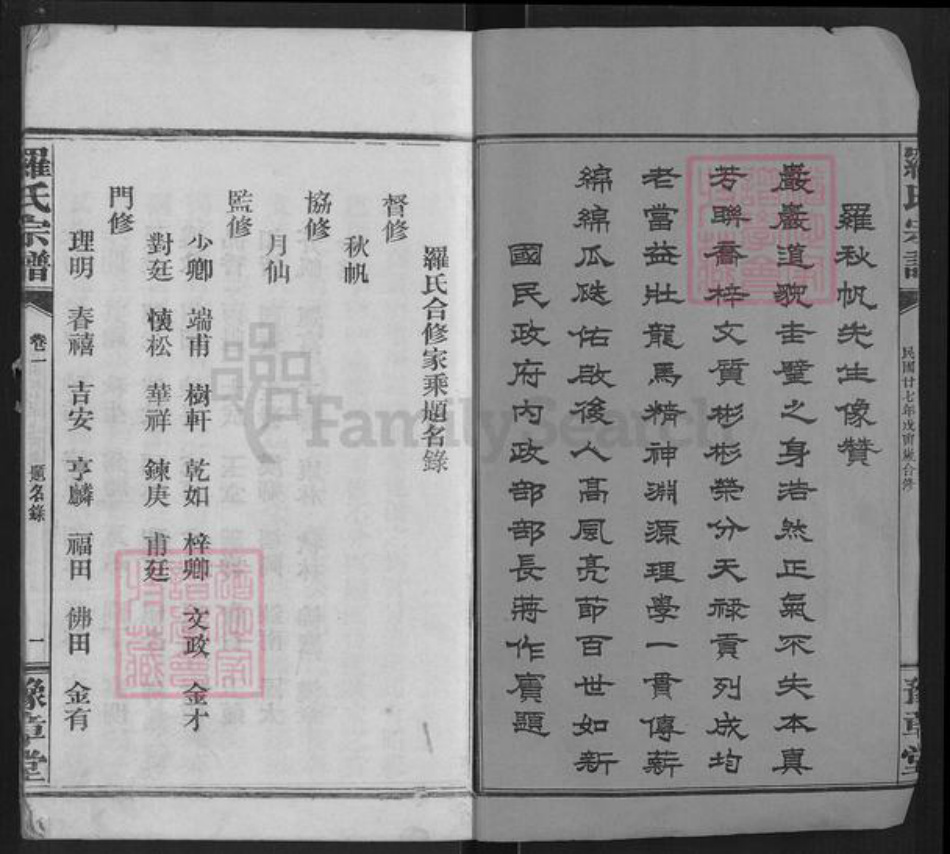 羅秋帆先生像贊
巖巖道貌圭璧之身浩然正氣不失本真
芳聯喬梓文質彬彬榮分天祿貢列成均
老當益壯龍馬精神淵源理學一貫傳薪
綿綿瓜瓞佑啟後人高風亮節百世如新
國民政府內政部部長蔣作賓題
羅氏宗譜
民國廿七年戊寅歲合修
豫章堂
羅氏合修家乘題名錄
督修
秋帆
協修
月仙
監修
少卿 端甫 樹軒 乾如 梓卿 文政 金才
對廷 懷松 華祥 鍊庚 甫廷
門修
理明 春禧 吉安 亨麟 福田 佛田 金有
羅氏宗譜
卷一
題名錄
一
豫章堂
FamilySearch